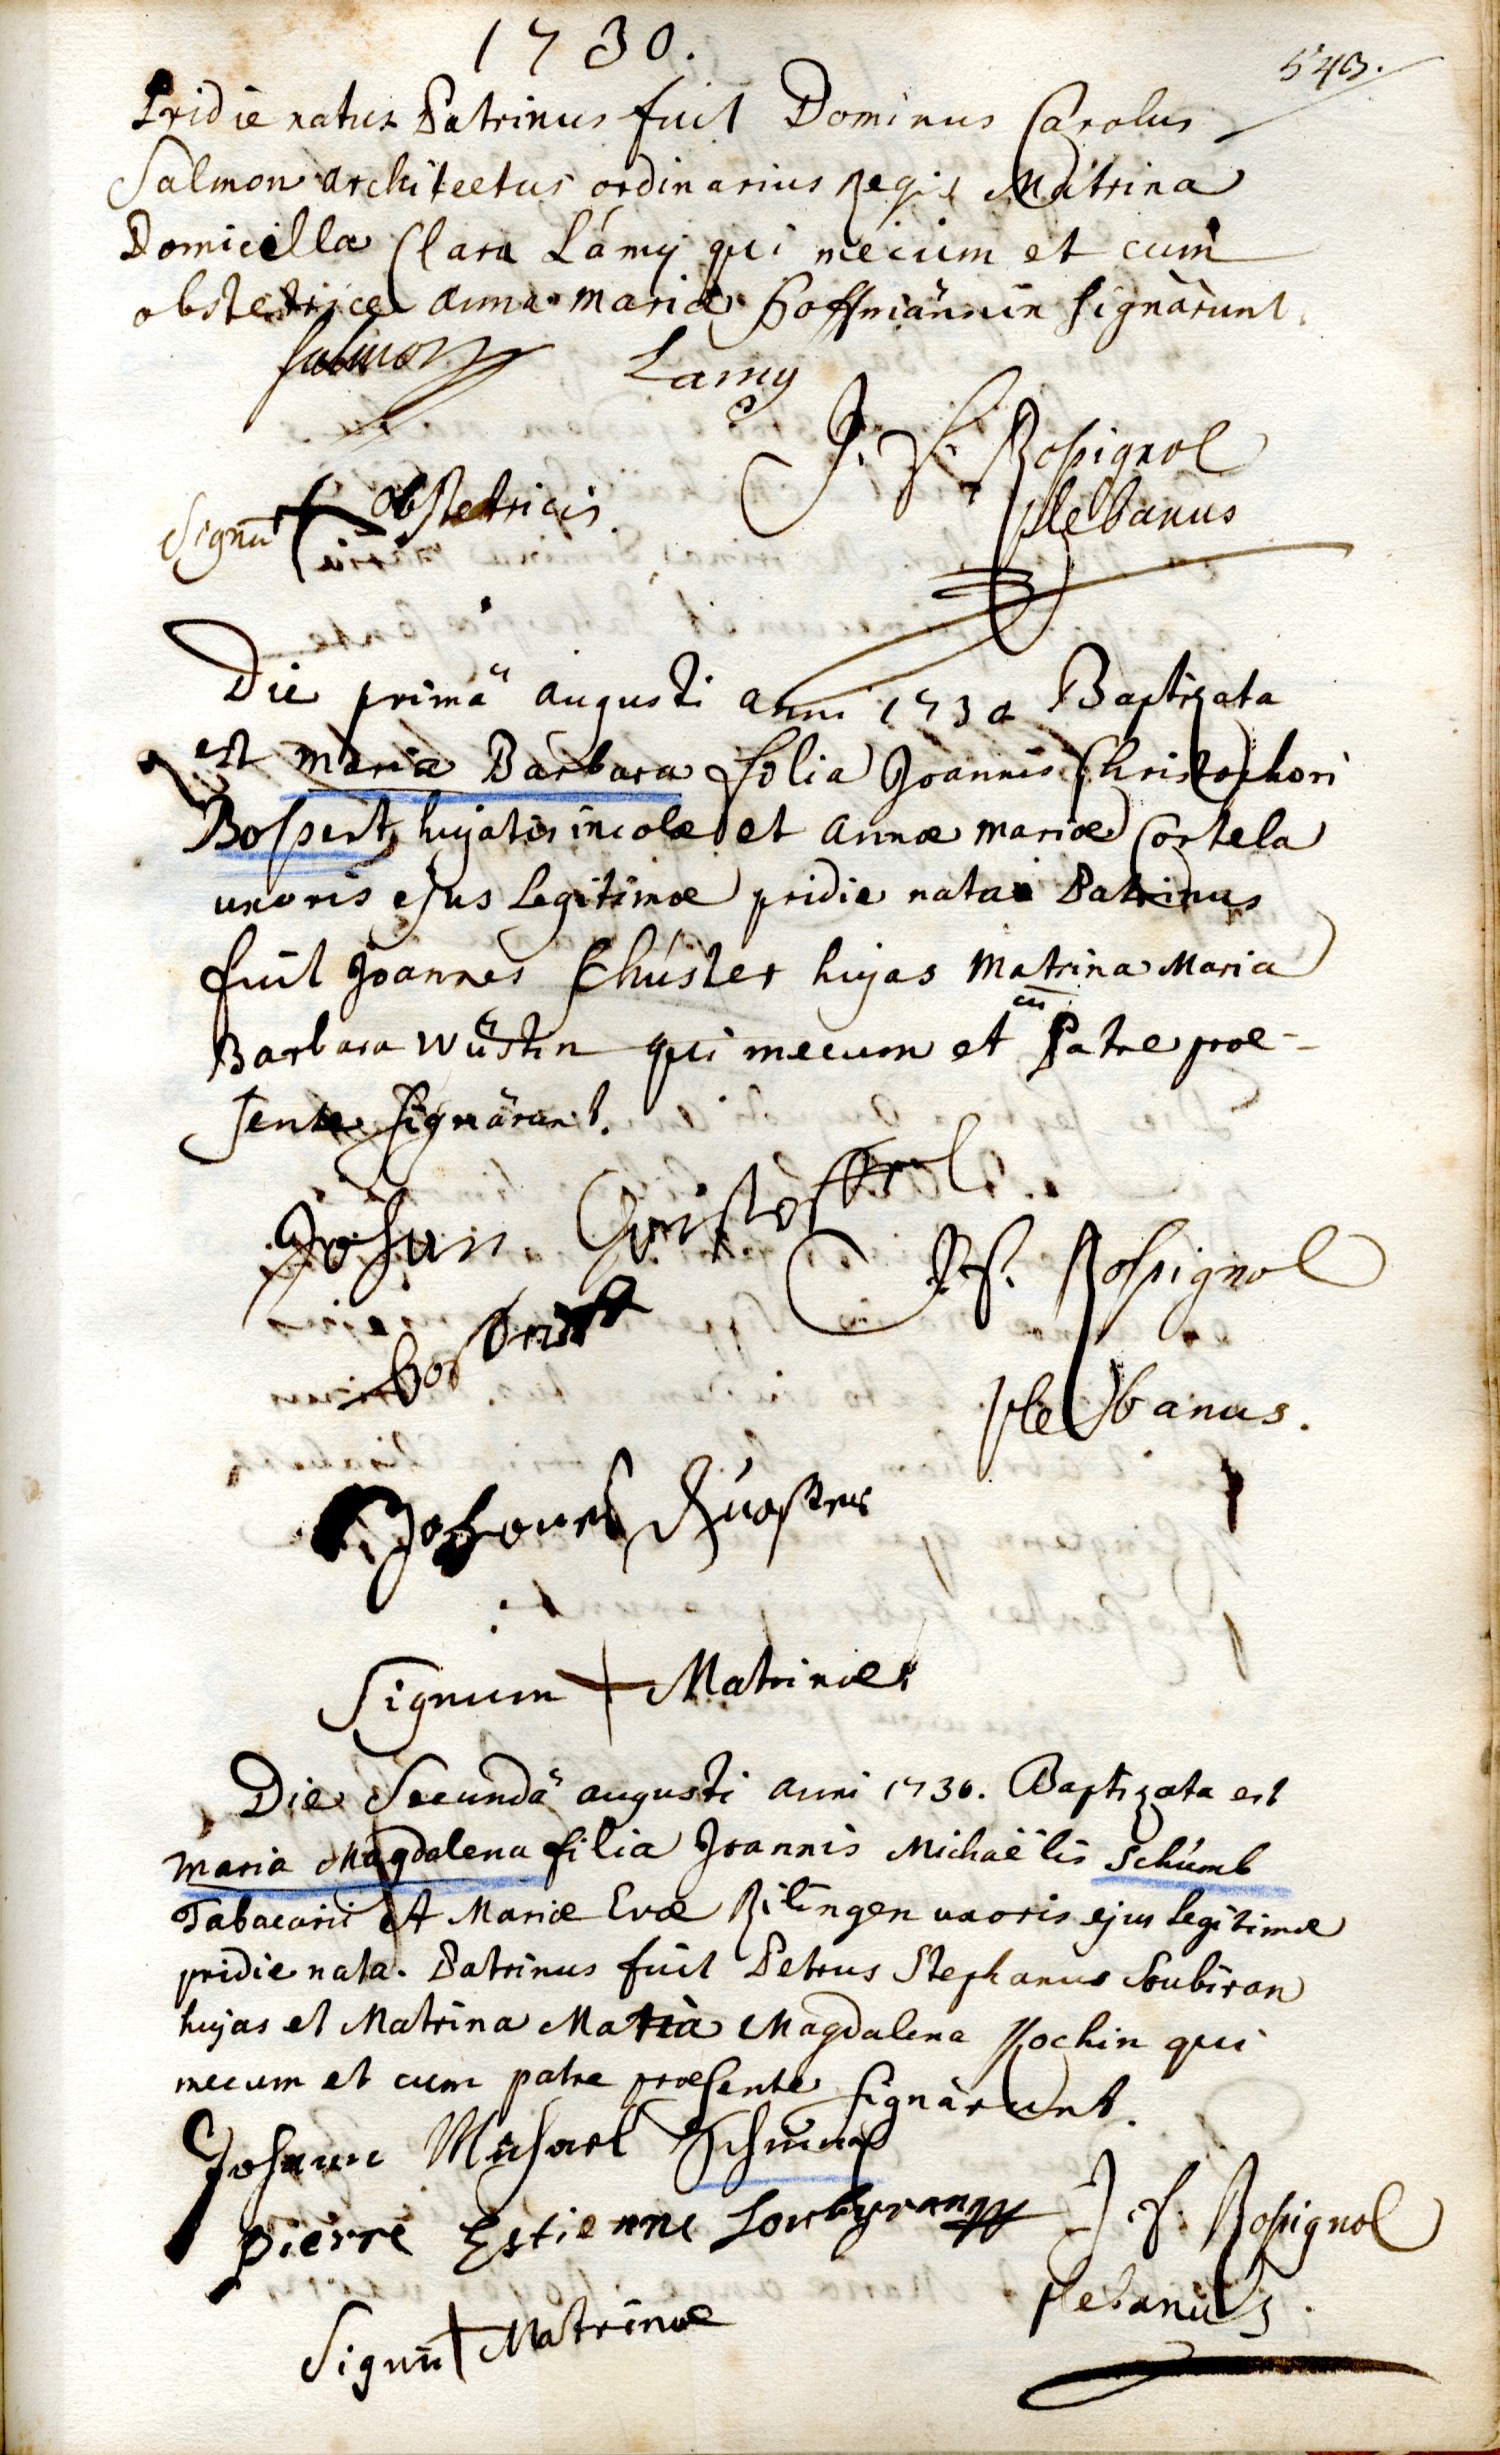 1730.
543.
Pridie natus Patrinus fuit Dominus Carolus
Salmon architectus ordinarius Regis Matrina
Domicella Clara Lamÿ qui mecum et cum
obstetrice anna maria Hoffmännin signarunt.
Salmon Lamy
J. F. Rossignol
plebanus
Signū + obstetricis
Die primâ augusti anni 1730 Baptizata
est Maria Barbara filia Joannis Christophori
Bossert hujatis incolæ et annæ mariæ Cortela
uxoris ejus legitimæ pridie nata Patrinus
fuit Joannes Schuster hujas Matrina Maria
Barbara Wüstin qui mecum et cū Patre præ-
sente signârunt.
Johann Christoffel
J. F. Rossignol
plebanus.
Johannes
Signum + Matrinæ
Die Secundâ augusti anni 1730. Baptizata est
Maria Magdalena filia Joannis Michaëlis Schumb
Tabacarii et Mariæ Evæ Rilingen uxoris ejus legitimæ
pridie nata. Patrinus fuit Petrus Stephanus Soubiran
hujas et Matrina Maria Magdalena Kochin qui
mecum et cum patre præsente signârunt.
Johann Michael Schumb
Pierre Estienne Soubyran
J. F. Rossignol
plebanus.
Signū + Matrinæ